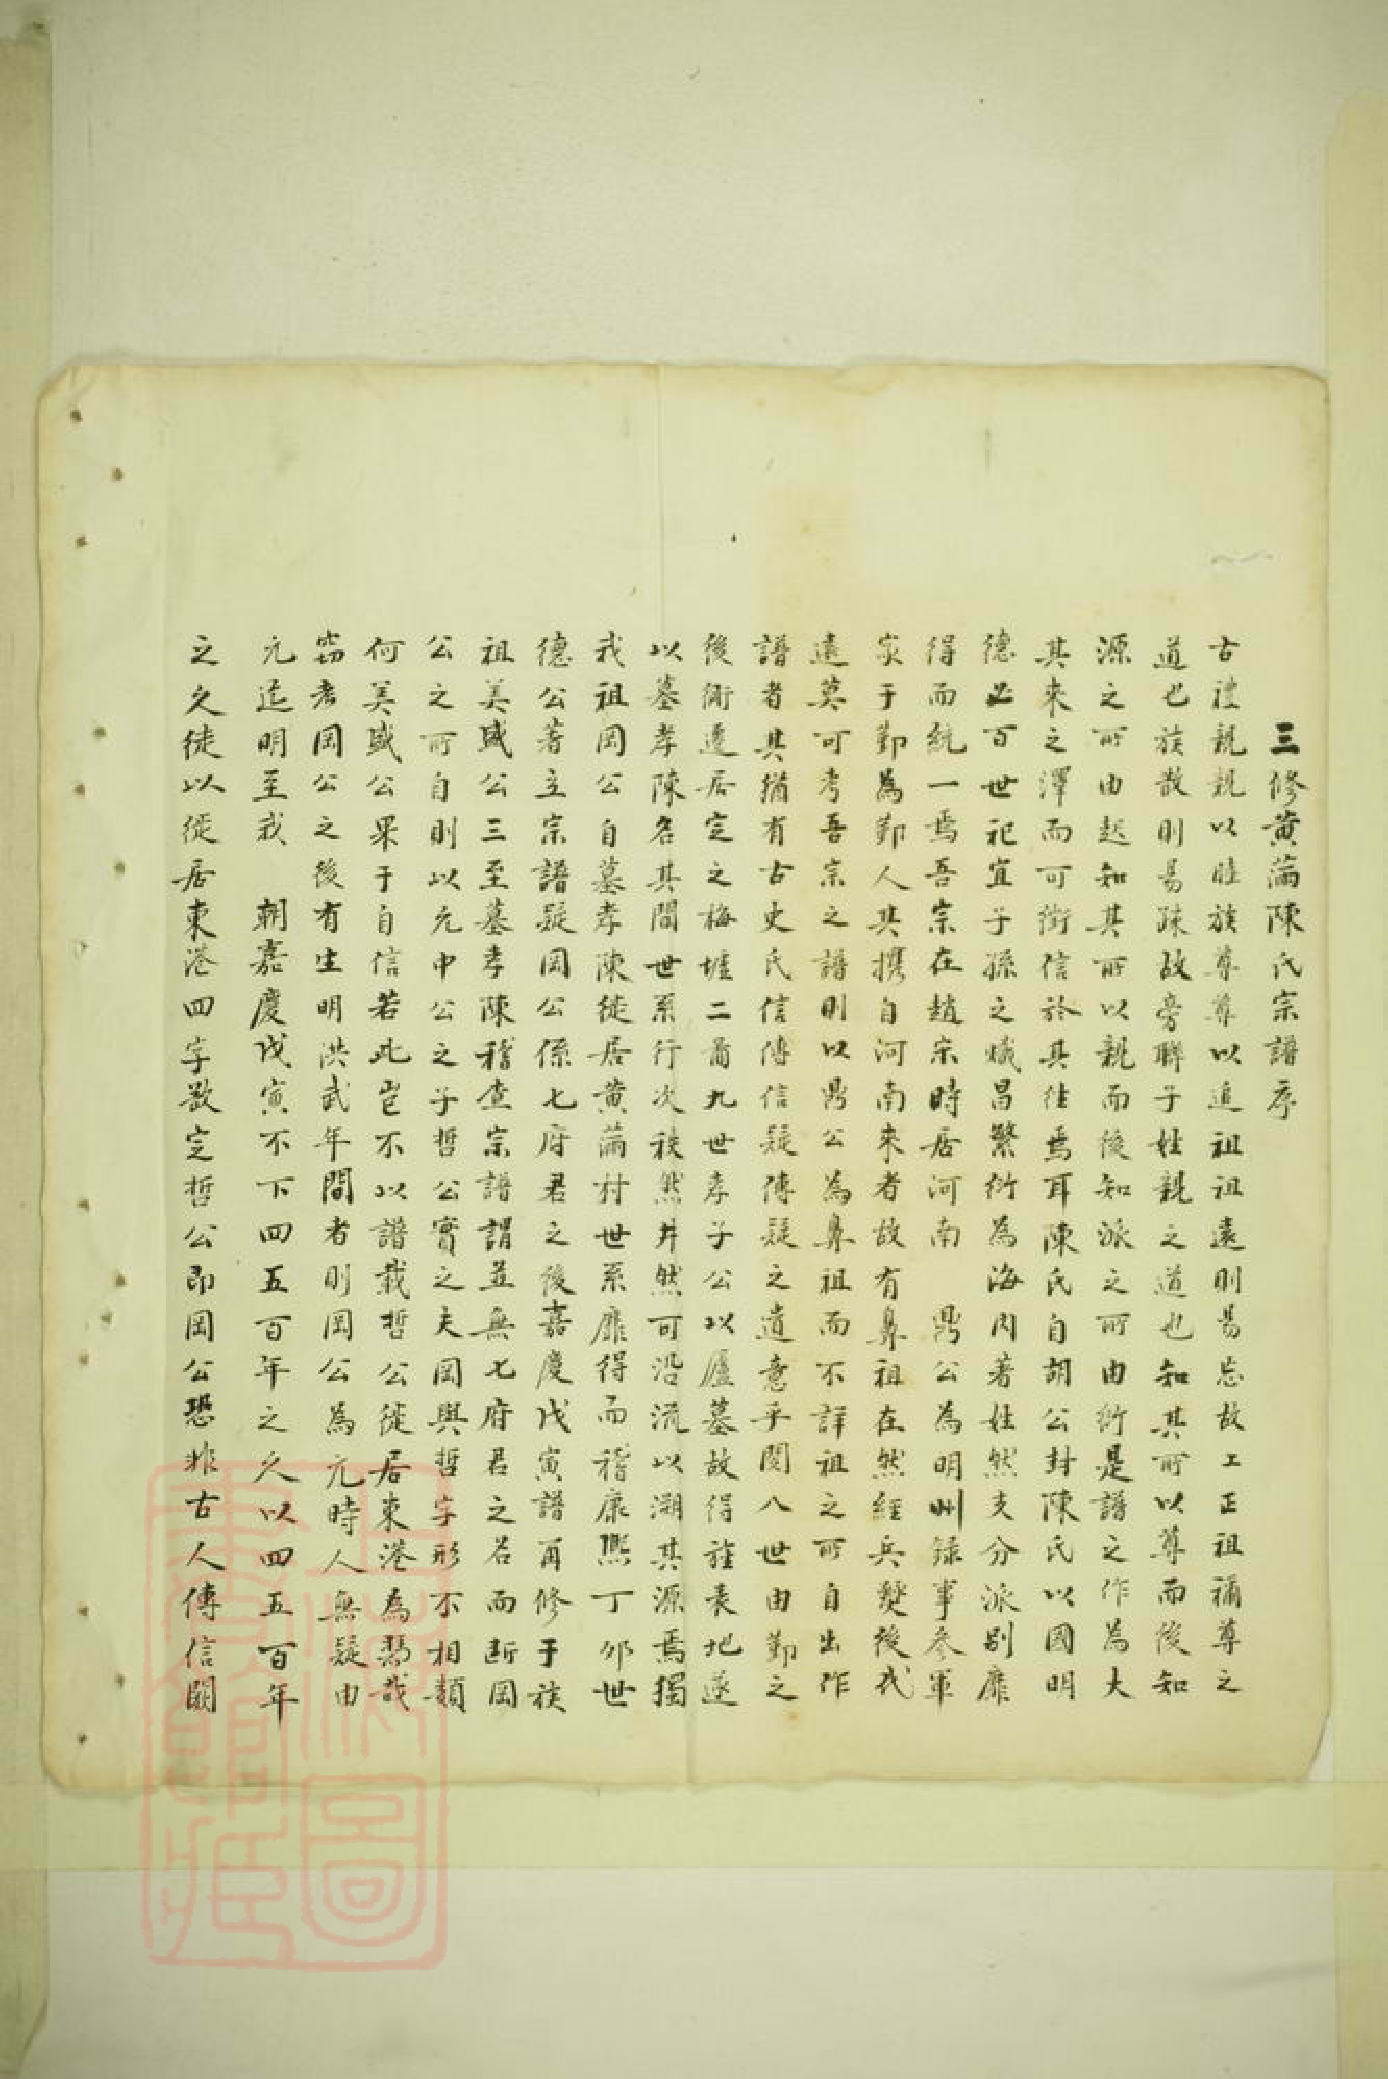 三修黄滿陳氏宗譜序
古禮親親以睦族尊尊以追祖祖遠則易忘故上正祖禰尊之
道也族散則易疎故旁聯子姓親之道也知其所以尊而後知
源之所由起知其所以親而後知派之所由衍是譜之作為大
其來之澤而可銜信於其徃焉耳陳氏自胡公封陳氏以國明
德必百世祀宜子孫之熾昌繁衍為海内著姓然支分派别靡
得而統一焉吾宗在趙宋時居河南 鼎公為明州錄事參軍
家于鄞為鄞人其攜自河南來者故有鼻祖在然經兵燹後代
遠莫可考吾宗之譜則以鼎公為鼻祖而不詳祖之所自出作
譜者其猶有古史氏信傳信疑傳疑之遺意乎閱八世由鄞之
後衕遷居定之梅墟二甬九世孝子公以廬墓故得旌表地遂
以墓孝陳名其間世系行次秩然井然可沿流以溯其源焉獨
我祖岡公自墓孝陳徙居黄滿村世系靡得而稽康熙丁卯世
德公著立宗譜疑岡公係七府君之後嘉慶戊寅譜再修于族
祖美盛公三至墓孝陳稽查宗譜謂並無七府君之名而斷岡
公之所自則以元中公之子哲公實之夫岡與哲字形不相類
何美盛公果于自信若此豈不以譜載哲公徙居東港為據哉
竊考岡公之後有生明洪武年間者則岡公為元時人無疑由
元迄明至我 朝嘉慶戊寅不下四五百年之久以四五百年
之久徒以徙居東港四字歘定哲公即岡公恐非古人傳信闕
上海圖書館藏